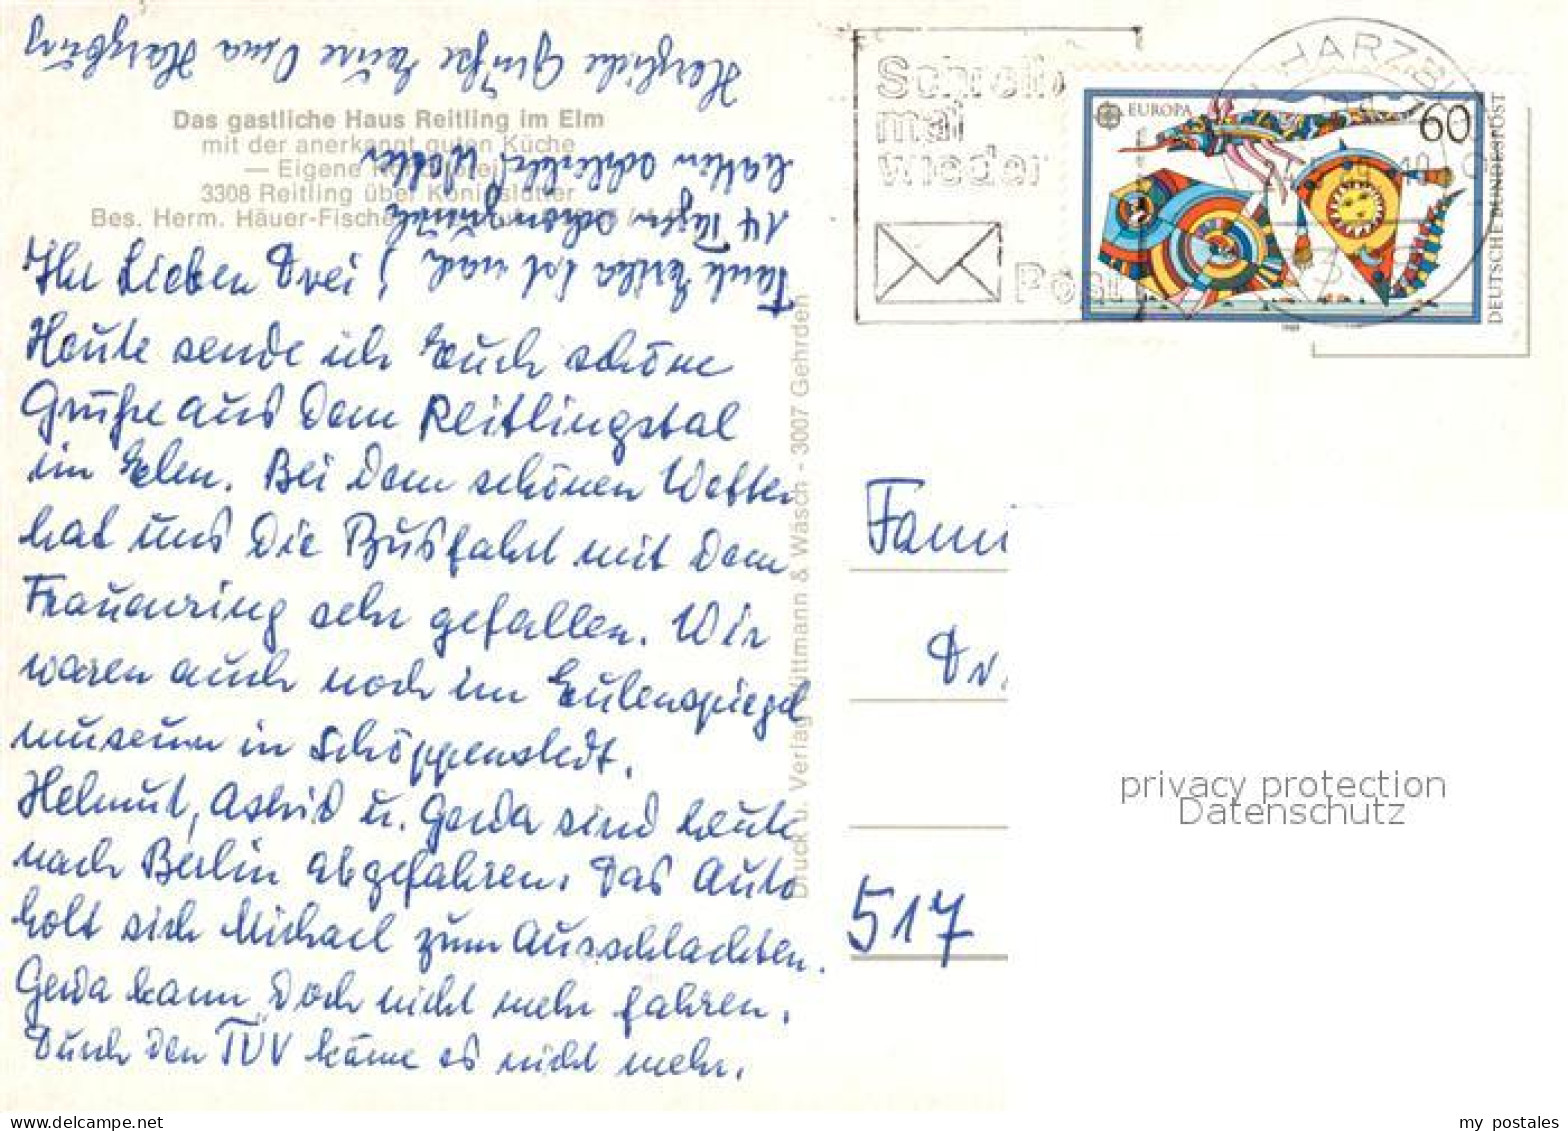 Das gastliche Haus Reitling im Elm
mit der anerkannt guten Küche
— Eigene
3308 Reitling über Königslutter
Bes. Herm. Häuer-Fischer
Ihr Lieben Drei!
Heute sende ich Euch schöne
Grüße aus dem Reitlingstal
im Elm. Bei dem schönen Wetter
hat uns die Busfahrt mit dem
Frauenring sehr gefallen. Wir
waren auch noch im Eulenspiegel
museum in Schöppenstedt.
Helmut, Astrid u. Gerda sind heute
nach Berlin abgefahren. Das Auto
holt sich Michael zum Ausschlachten.
Gerda kann doch nicht mehr fahren.
Durch den TÜV käme es nicht mehr.
Tante Erika ist nach
14 Tagen schon zurück
hatten schlechtes Wetter
Herzliche Grüße Eure Oma Harzburg
Druck u. Verlag Wittmann & Wäsch - 3007 Gehrden
Schreib
mal
wieder
Post
HARZB
EUROPA
60
DEUTSCHE BUNDESPOST
1989
Fam
Dr.
517
privacy protection
Datenschutz
my postales